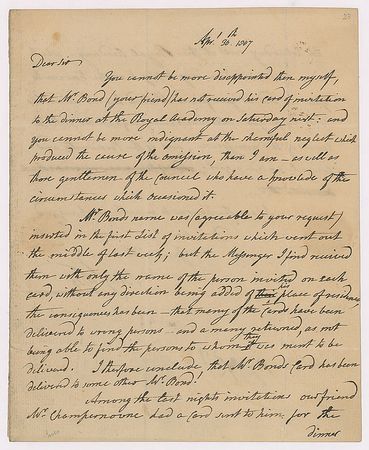 23
Apr.l 30.th 1807
Dear Sir
You cannot be more disappointed then myself,
that Mr. Bond (your friend) has not received his card of invitation
to the dinner at the Royal Academy on Saturday next: and
you cannot be more indignant at the shameful neglect which
produced the cause of the omission, than I am – as well as
those gentlemen of the Council who have a knowledge of the
circumstances which occasioned it.
Mr. Bonds name was (agreeable to your request)
inserted in the first list of invitations which went out
the middle of last week; but the Messenger I find received
them with only the name of the person invited on each
card, without any direction being added of their his place of residence
the consequences has been – that many of the Cards have been
delivered to wrong persons – and a many returned, as not
being able to find the persons to whom that it was ment to be
deliverd. I therefore conclude, that Mr. Bonds Card has been
deliverd to some other Mr. Bond!
Among the last nights invitations our friend
Mr. Champernowne had a Card sent to him for the
dinner